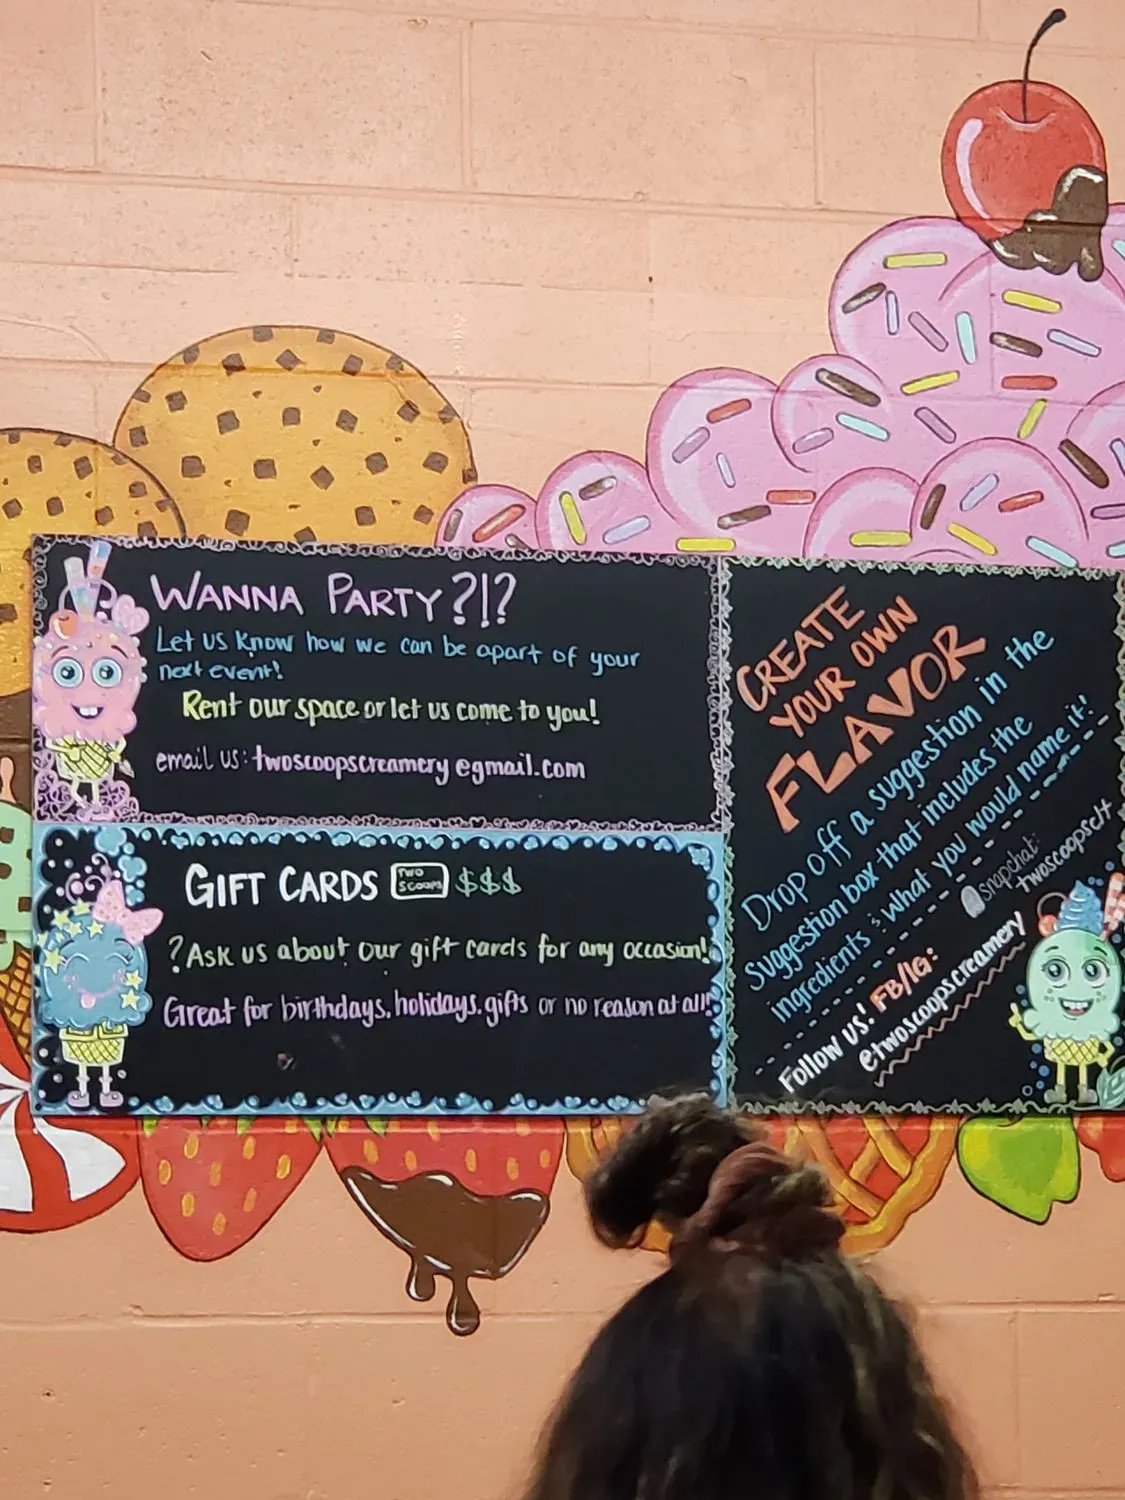 WANNA PARTY?!?
Let us know how we can be apart of your
next event!
Rent our space or let us come to you!
email us: twoscoopscreamery@gmail.com
GIFT CARDS TWO SCOOPS $$$
?Ask us about our gift cards for any occasion!
Great for birthdays, holidays, gifts or no reason at all!!
CREATE
YOUR OWN
FLAVOR
Drop off a suggestion in the
suggestion box that includes the
ingredients & what you would name it!
snapchat:
twoscoopsclt
Follow us! FB/IG:
@twoscoopscreamery